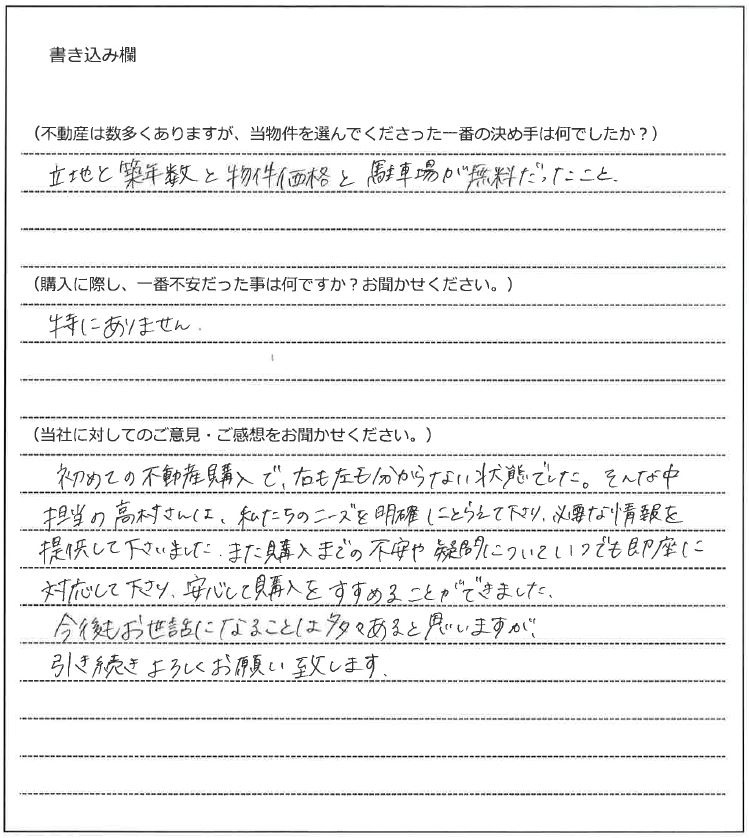 書き込み欄
（不動産は数多くありますが、当物件を選んでくださった一番の決め手は何でしたか？）
立地と築年数と物件価格と駐車場が無料だったこと.
（購入に際し、一番不安だった事は何ですか？お聞かせください。）
特にありません.
（当社に対してのご意見・ご感想をお聞かせください。）
初めての不動産購入で、右も左も分からない状態でした。そんな中
担当の高村さんは、私たちのニーズを明確にとらえて下さり、必要な情報を
提供して下さいました. また購入までの不安や疑問についていつでも即座に
対応して下さり、安心して購入をすすめることができました.
今後もお世話になることは多々あると思いますが、
引き続きよろしくお願い致します.